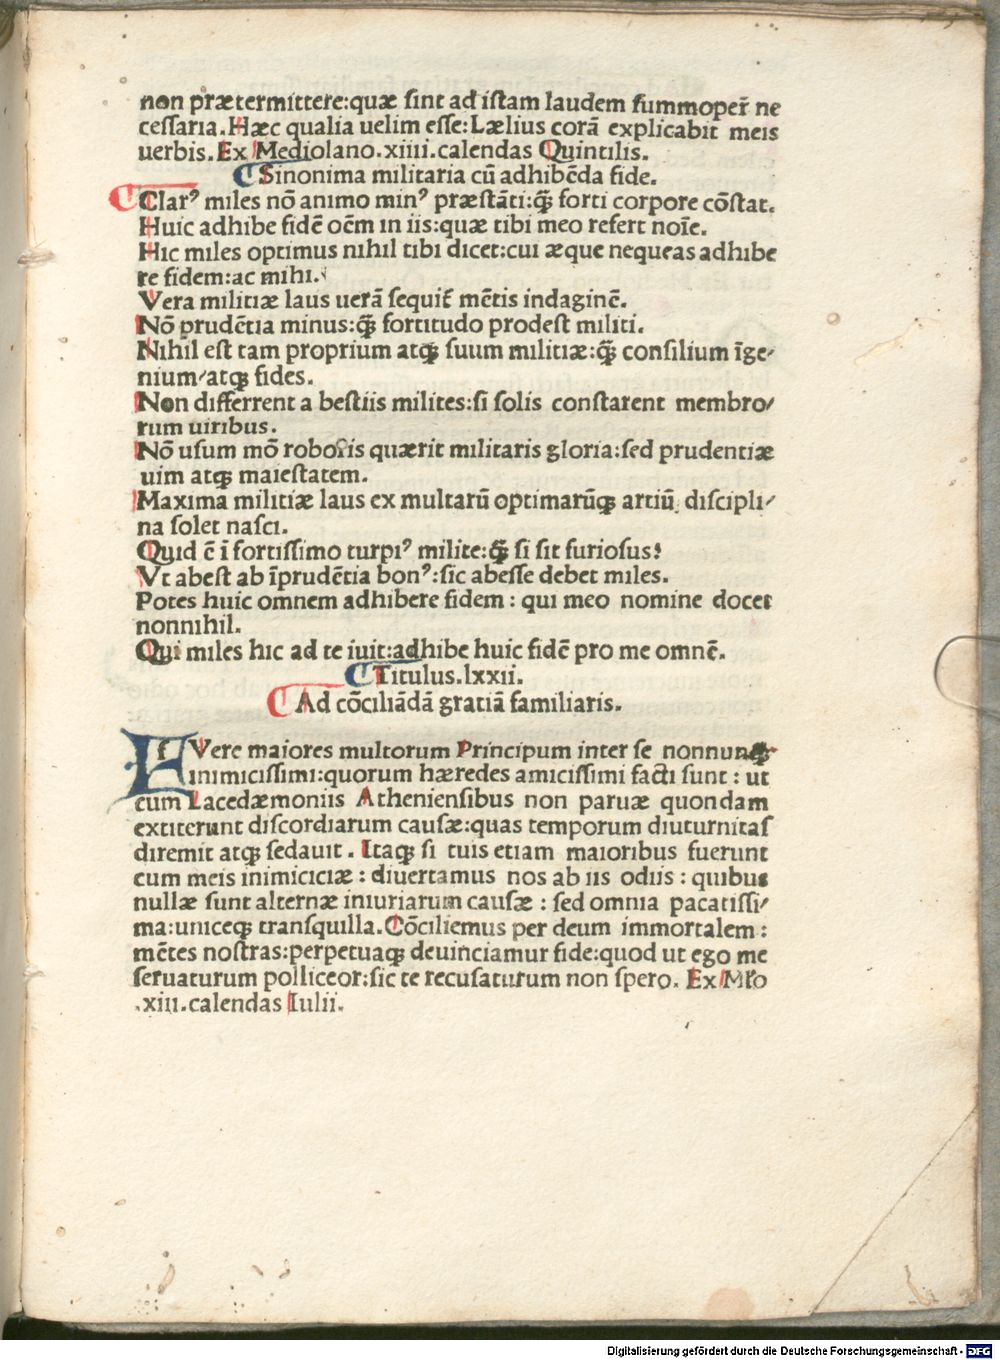 non prætermittere:quæ sint ad istam laudem summoper̃ ne
cessaria.Hæc qualia uelim esse:Lælius corã explicabit meis
uerbis.Ex Mediolano.xiiii.calendas Quintilis.
Sinonima militaria cũ adhibẽda fide.
Clarꝰ miles nõ animo minꝰ præstãti:q̃ꝫ forti corpore cõstat.
Huic adhibe fidẽ oẽm in iis:quæ tibi meo refert noĩe.
Hic miles optimus nihil tibi dicet:cui æque nequeas adhibe
re fidem:ac mihi.
Vera militiæ laus uerã sequit̃ mẽtis indaginẽ.
Nõ prudẽtia minus:q̃ꝫ fortitudo prodest militi.
Nihil est tam proprium atqꝫ suum militiæ:q̃ꝫ consilium ĩge/
nium/atqꝫ fides.
Non differrent a bestiis milites:si solis constarent membro/
rum uiribus.
Nõ usum mõ roboris quærit militaris gloria:sed prudentiæ
uim atqꝫ maiestatem.
Maxima militiæ laus ex multarũ optimarũqꝫ artiũ discipli/
na solet nasci.
Quid ẽ ĩ fortissimo turpiꝰ milite:q̃ꝫ si sit furiosus?
Vt abest ab ĩprudẽtia bonꝰ:sic abesse debet miles.
Potes huic omnem adhibere fidem : qui meo nomine docet
nonnihil.
Qui miles hic ad te iuit:adhibe huic fidẽ pro me omnẽ.
Titulus.lxxii.
Ad cõciliãdã gratiã familiaris.
FVere maiores multorum Principum inter se nonnunqꝫ
inimicissimi:quorum hæredes amicissimi facti sunt : ut
cum Lacedæmoniis Atheniensibus non paruæ quondam
extiterunt discordiarum causæ:quas temporum diuturnitas
diremit atqꝫ sedauit . Itaqꝫ si tuis etiam maioribus fuerunt
cum meis inimiciciæ : diuertamus nos ab iis odiis : quibus
nullæ sunt alternæ iniuriarum causæ : sed omnia pacatissi/
ma:uniceqꝫ transquilla.Cõciliemus per deum immortalem :
mẽtes nostras:perpetuaqꝫ deuinciamur fide:quod ut ego me
seruaturum polliceor:sic te recusaturum non spero. Ex Mlo
.xiii.calendas Iulii.
Digitalisierung gefördert durch die Deutsche Forschungsgemeinschaft - DFG